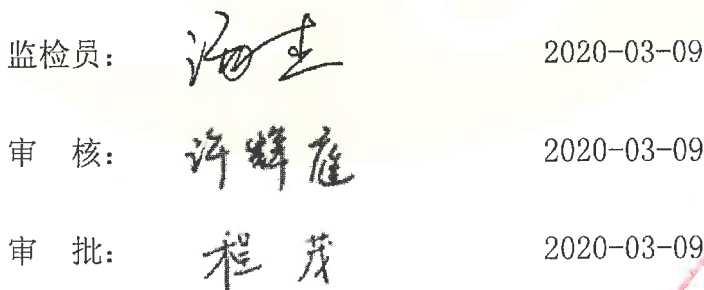 监检员： 2020-03-09
审 核： 许辉庭 2020-03-09
审 批： 程茂 2020-03-09